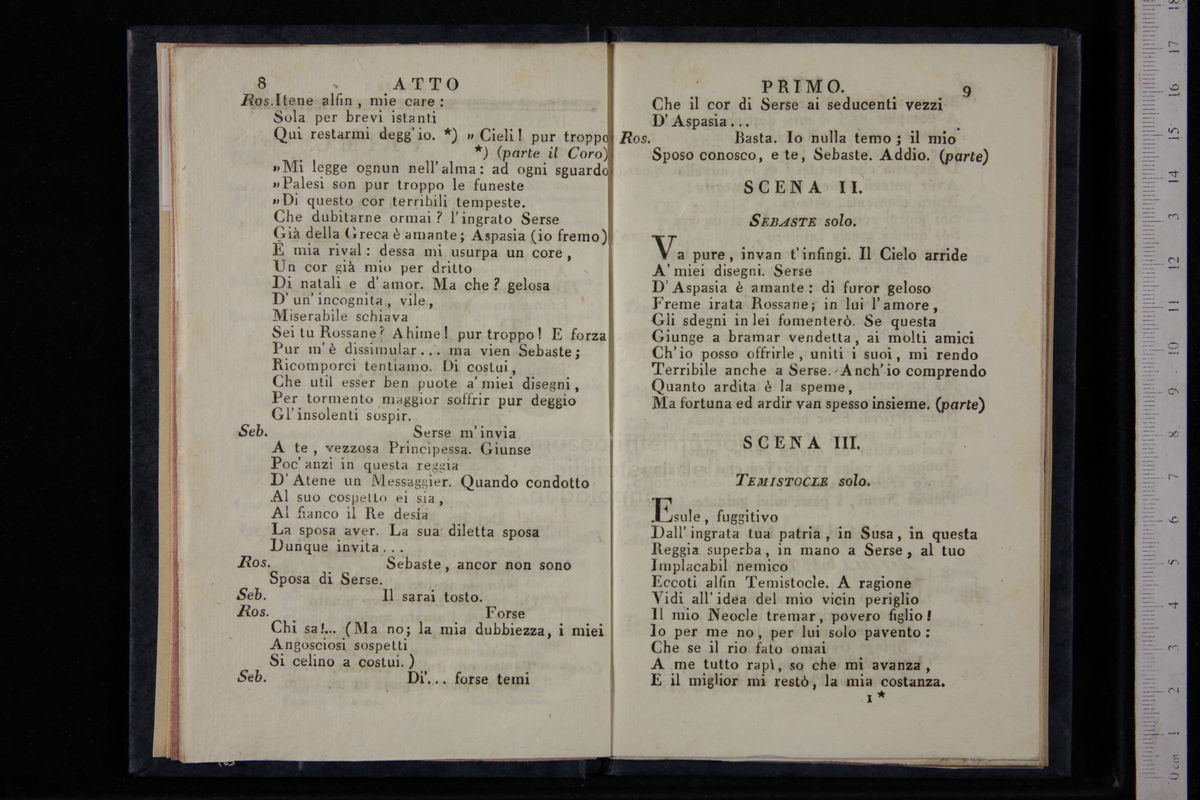 8 ATTO
Ros. Itene alfin , mie care :
Sola per brevi istanti
Qui restarmi degg'io. *) » Cieli! pur troppo
*) (parte il Coro)
»Mi legge ognun nell'alma : ad ogni sguardo
»Palesi son pur troppo le funeste
»Di questo cor terribili tempeste.
Che dubitarne ormai ? l'ingrato Serse
Già della Greca è amante ; Aspasia (io fremo)
È mia rival : dessa mi usurpa un core ,
Un cor già mio per dritto
Di natali e d'amor. Ma che ? gelosa
D'un'incognita , vile ,
Miserabile schiava
Sei tu Rossane ? Ahime ! pur troppo ! E forza
Pur m'è dissimular... ma vien Sebaste ;
Ricomporci tentiamo. Di costui ,
Che util esser ben puote a'miei disegni ,
Per tormento maggior soffrir pur deggio
Gl'insolenti sospir.
Seb. Serse m'invia
A te , vezzosa Principessa. Giunse
Poc'anzi in questa reggia
D'Atene un Messaggier. Quando condotto
Al suo cospetto ei sia ,
Al fianco il Re desia
La sposa aver. La sua diletta sposa
Dunque invita...
Ros. Sebaste , ancor non sono
Sposa di Serse.
Seb. Il sarai tosto.
Ros. Forse
Chi sa!... (Ma no; la mia dubbiezza, i miei
Angosciosi sospetti
Si celino a costui. )
Seb. Di'... forse temi
PRIMO. 9
Che il cor di Serse ai seducenti vezzi
D'Aspasia...
Ros. Basta. Io nulla temo ; il mio
Sposo conosco, e te, Sebaste. Addio. (parte)
SCENA II.
SEBASTE solo.
Va pure , invan t'infingi. Il Cielo arride
A'miei disegni. Serse
D'Aspasia è amante : di furor geloso
Freme irata Rossane; in lui l'amore ,
Gli sdegni in lei fomenterò. Se questa
Giunge a bramar vendetta , ai molti amici
Ch'io posso offrirle , uniti i suoi , mi rendo
Terribile anche a Serse. Anch'io comprendo
Quanto ardita è la speme ,
Ma fortuna ed ardir van spesso insieme. (parte)
SCENA III.
TEMISTOCLE solo.
Esule , fuggitivo
Dall'ingrata tua patria , in Susa , in questa
Reggia superba , in mano a Serse , al tuo
Implacabil nemico
Eccoti alfin Temistocle. A ragione
Vidi all'idea del mio vicin periglio
Il mio Neocle tremar , povero figlio !
Io per me no , per lui solo pavento :
Che se il rio fato omai
A me tutto rapì , so che mi avanza ,
E il miglior mi restò , la mia costanza.
1 *